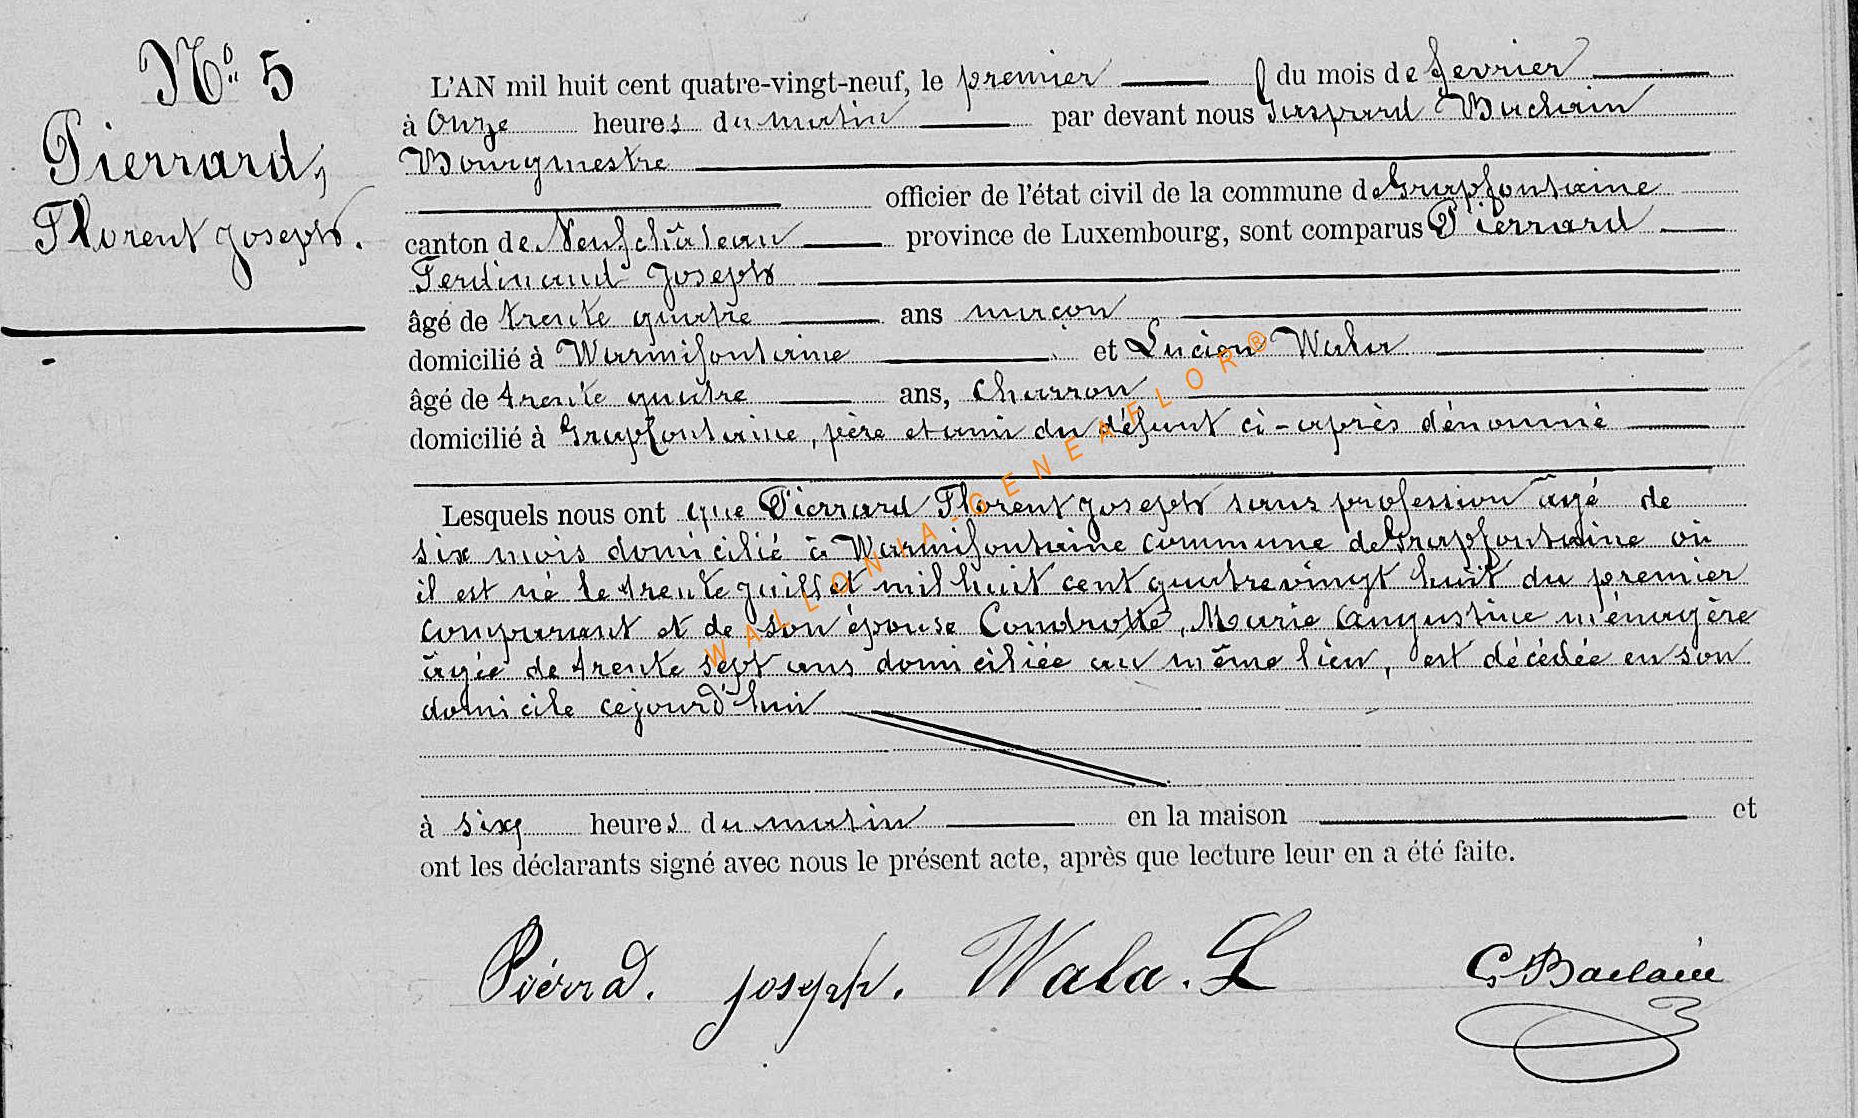 N° 5
Pierrard,
Florent Joseph.
L'AN mil huit cent quatre-vingt-neuf, le premier du mois de février
à Onze heures du matin par devant nous Gaspard Baclain
Bourgmestre
officier de l'état civil de la commune de Grapfontaine
canton de Neufchâteau province de Luxembourg, sont comparus Pierrard
Ferdinand Joseph
âgé de trente quatre ans maçon
domicilié à Warmifontaine et Lucien Wala
âgé de trente quatre ans, charron
domicilié à Grapfontaine, père et ami du défunt ci-après dénommé
Lesquels nous ont que Pierrard Florent Joseph sans profession âgé de
six mois domicilié à Warmifontaine commune de Grapfontaine où
il est né le trente juillet mil huit cent quatre vingt huit du premier
comparant et de son épouse Condrotte, Marie Augustine ménagère
âgée de trente sept ans domiciliée au même lieu, est décédée en son
domicile cejourd'hui
à six heures du matin en la maison et
ont les déclarants signé avec nous le présent acte, après que lecture leur en a été faite.
Piérrad. joseph. Wala. L G Baclain
WALLONIA-GENEAFLOR®